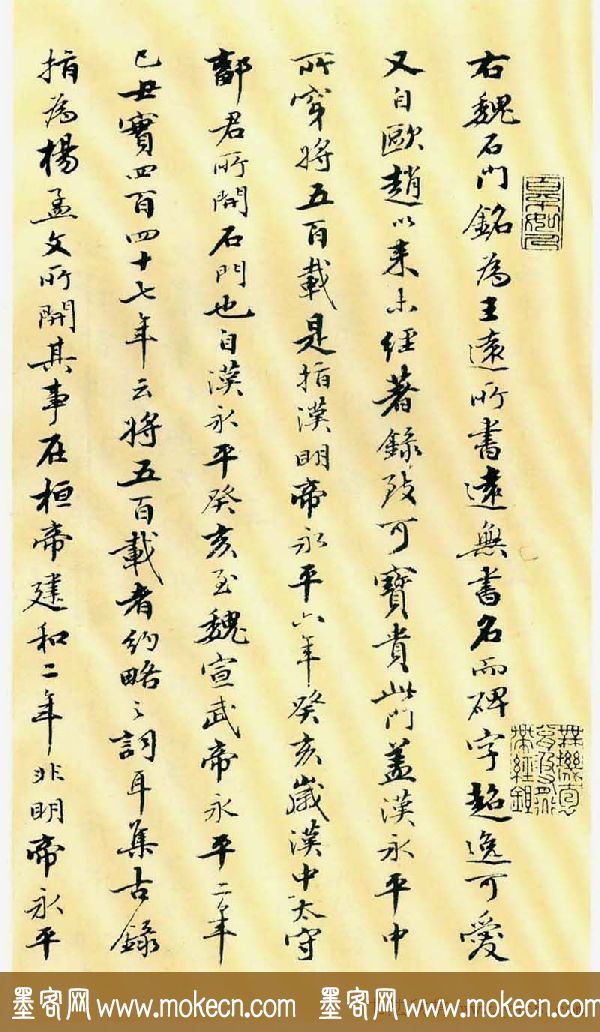 右魏石門銘為王遠所書遠無書名而碑字超逸可愛
又自歐趙以來未經著錄致可寶貴此門蓋漢永平中
所穿將五百載是指漢明帝永平六年癸亥歲漢中太守
鄐君所開石門也自漢永平癸亥至魏宣武帝永平二年
己丑實四百四十七年云將五百載者約略之詞耳集古錄
指為楊孟文所開其事在桓帝建和二年非明帝永平
墨客网 www.mokecn.com 墨客网 www.mokecn.com